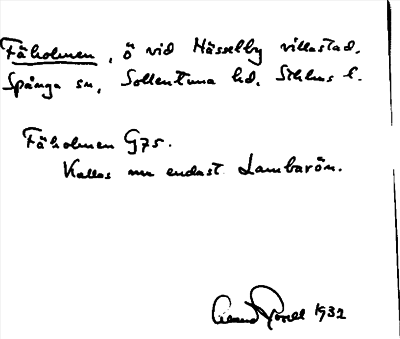 Fäholmen, ö vid Hässelby villastad,
Spånga sn, Sollentuna hd, Sthlms l.
Fäholmen G75.
Kallas nu endast Lambarön.
1932